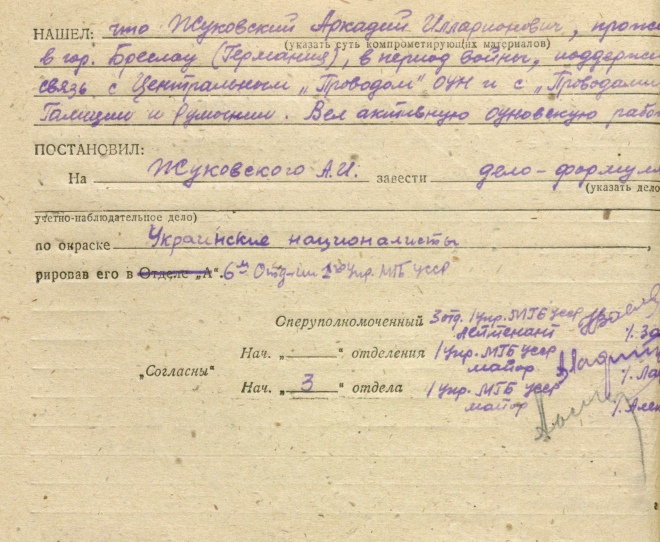 НАШЕЛ: что Жуковский Аркадий Илларионович,
(указать суть компрометирующих материалов)
в гор. Бреслау (Германия), в период войны,
связь с Центральным „Проводом" ОУН и с „Проводами
Галиции и Румынии. Вел активную оуновскую
ПОСТАНОВИЛ:
На Жуковского А.И. завести дело-формуля
(указать дело
учетно-наблюдательное дело)
по окраске Украинские националисты,
рировав его в Отделе „А". 6м Отд-нии 1го Упр. МГБ УССР
Оперуполномоченный 3 отд. 1 упр. МГБ УССР
лейтенант
Нач. „ " отделения 1 Упр. МГБ УССР
майор
„Согласны"
Нач. „ 3 " отдела 1 Упр. МГБ УССР
майор